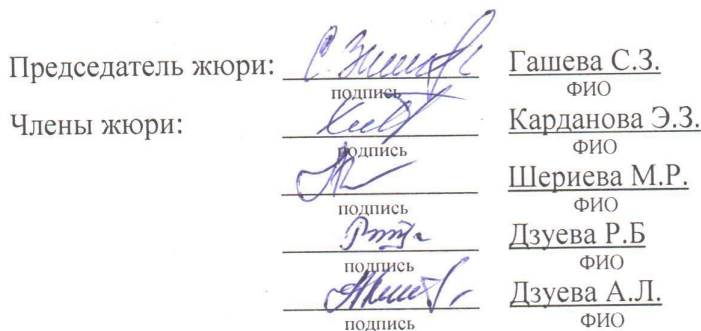 Председатель жюри: Гашева С.З.
подпись ФИО
Члены жюри: Карданова Э.З.
подпись ФИО
Шериева М.Р.
подпись ФИО
Дзуева Р.Б
подпись ФИО
Дзуева А.Л.
подпись ФИО